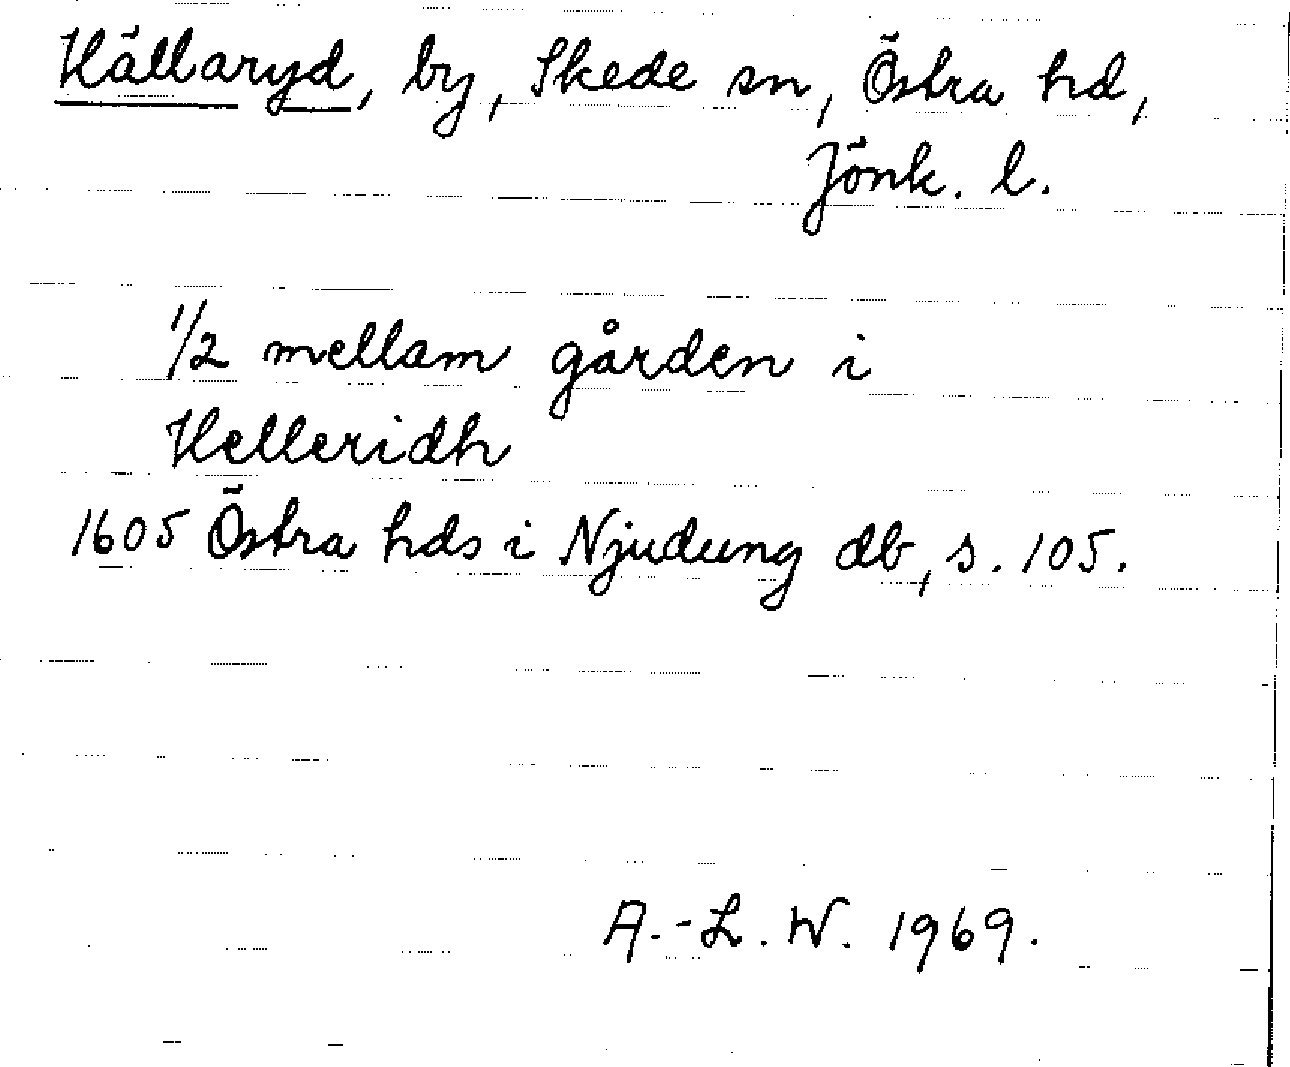 Hällaryd, by, Skede sn, Östra hd,
Jönk. l.
1/2 mellam gården i
Helleridh
1605 Östra hds i Njudung db, s. 105.
A.-L. W. 1969.